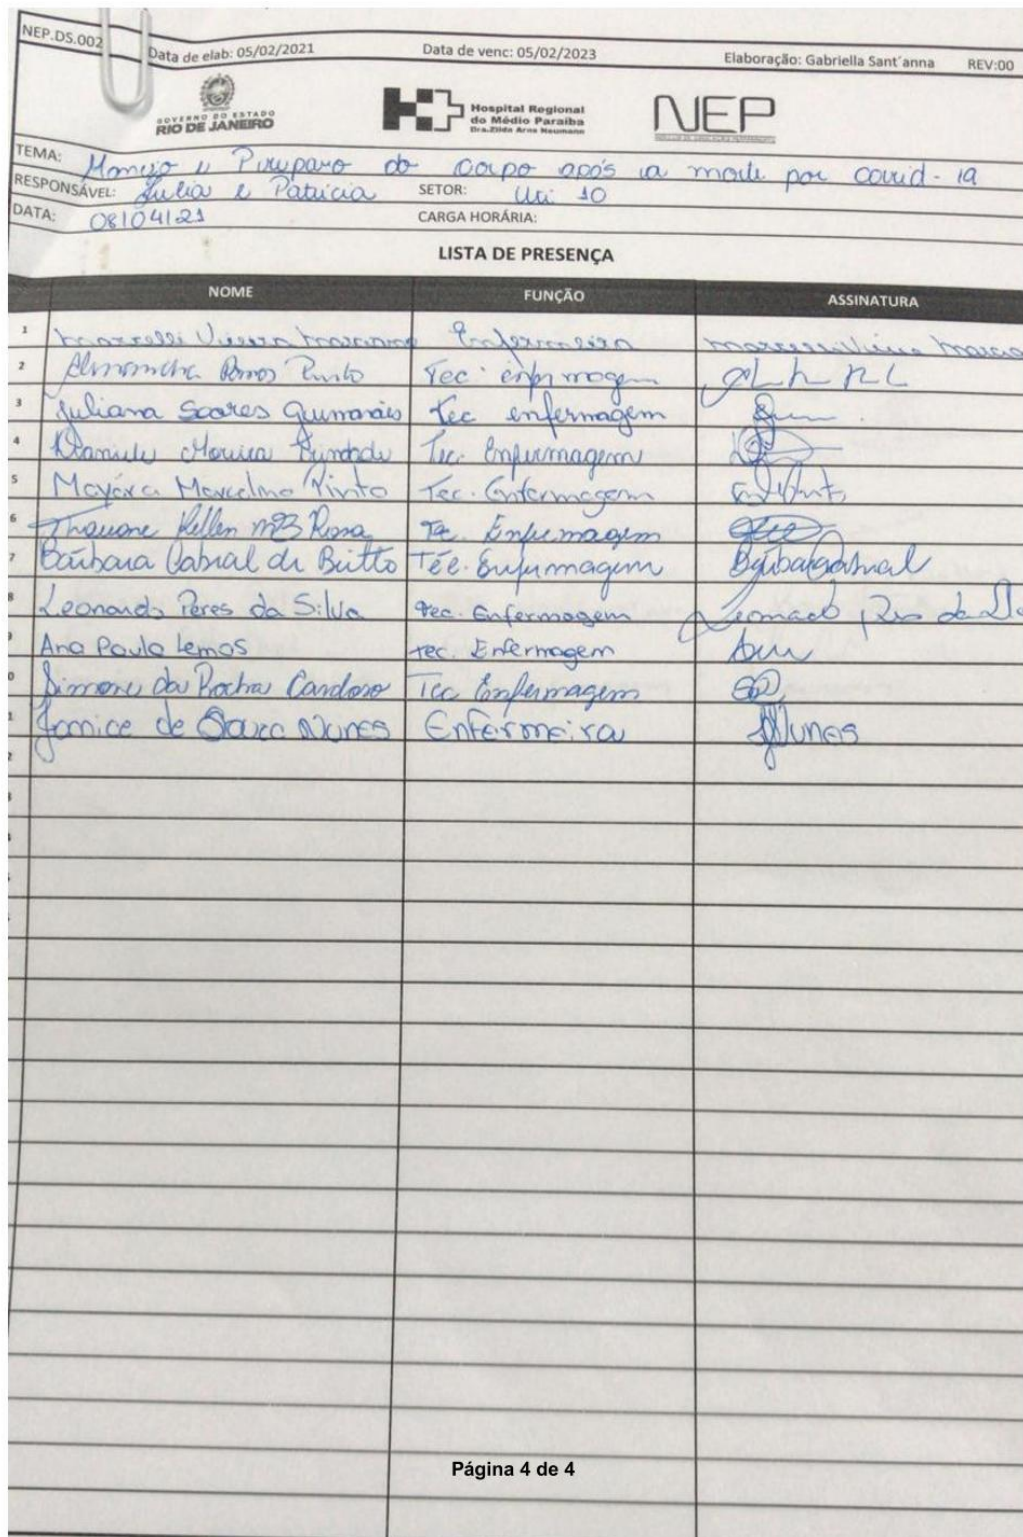 NEP.DS.002 Data de elab: 05/02/2021 Data de venc: 05/02/2023 Elaboração: Gabriella Sant´anna REV:00
GOVERNO DO ESTADO
RIO DE JANEIRO
Hospital Regional
do Médio Paraíba
Dra.Zilda Arns Neumann
NEP
TEMA: Manejo e Preparo do corpo após a morte por covid-19
RESPONSÁVEL: Julia e Patricia SETOR: Uti 10
DATA: 08/04/21 CARGA HORÁRIA:
LISTA DE PRESENÇA
NOME FUNÇÃO ASSINATURA
1 Vieira Enfermeira
2 Ramos Pinto Tec. enfermagem
3 Juliana Soares Guimarães Tec enfermagem
4 Daniele Moreira Tec. Enfermagem
5 Mayára Marcelino Pinto Tec. Enfermagem
6 Kellen Tec. Enfermagem
7 Bárbara Cabral de Britto Téc. Enfermagem Bárbara Cabral
8 Leonardo Peres da Silva tec. Enfermagem
Ana Paula Lemos tec. Enfermagem
Simone da Rocha Cardoso Tec Enfermagem
Janice de Souza Nunes Enfermeira JNunes
Página 4 de 4